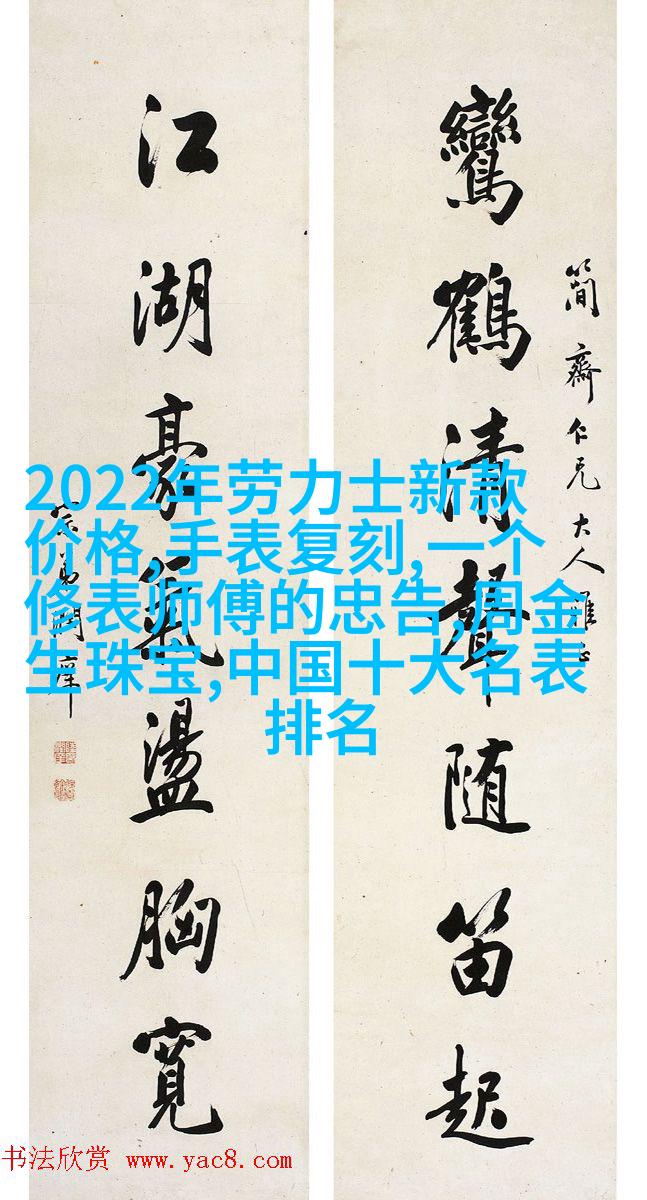 簡齋仁兄大人雅正
鸞鶴清聲随笛起
江湖豪氣盪胸寬
2022年劳力士新款
价格,手表复刻,一个
修表师傅的忠告,周金
生珠宝,中国十大名表
排名
书法欣赏 www.yac8.com